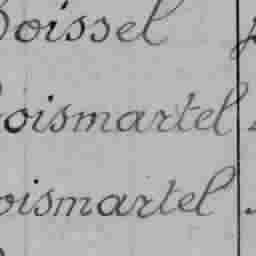 Boissel
Boismartel
Boismartel